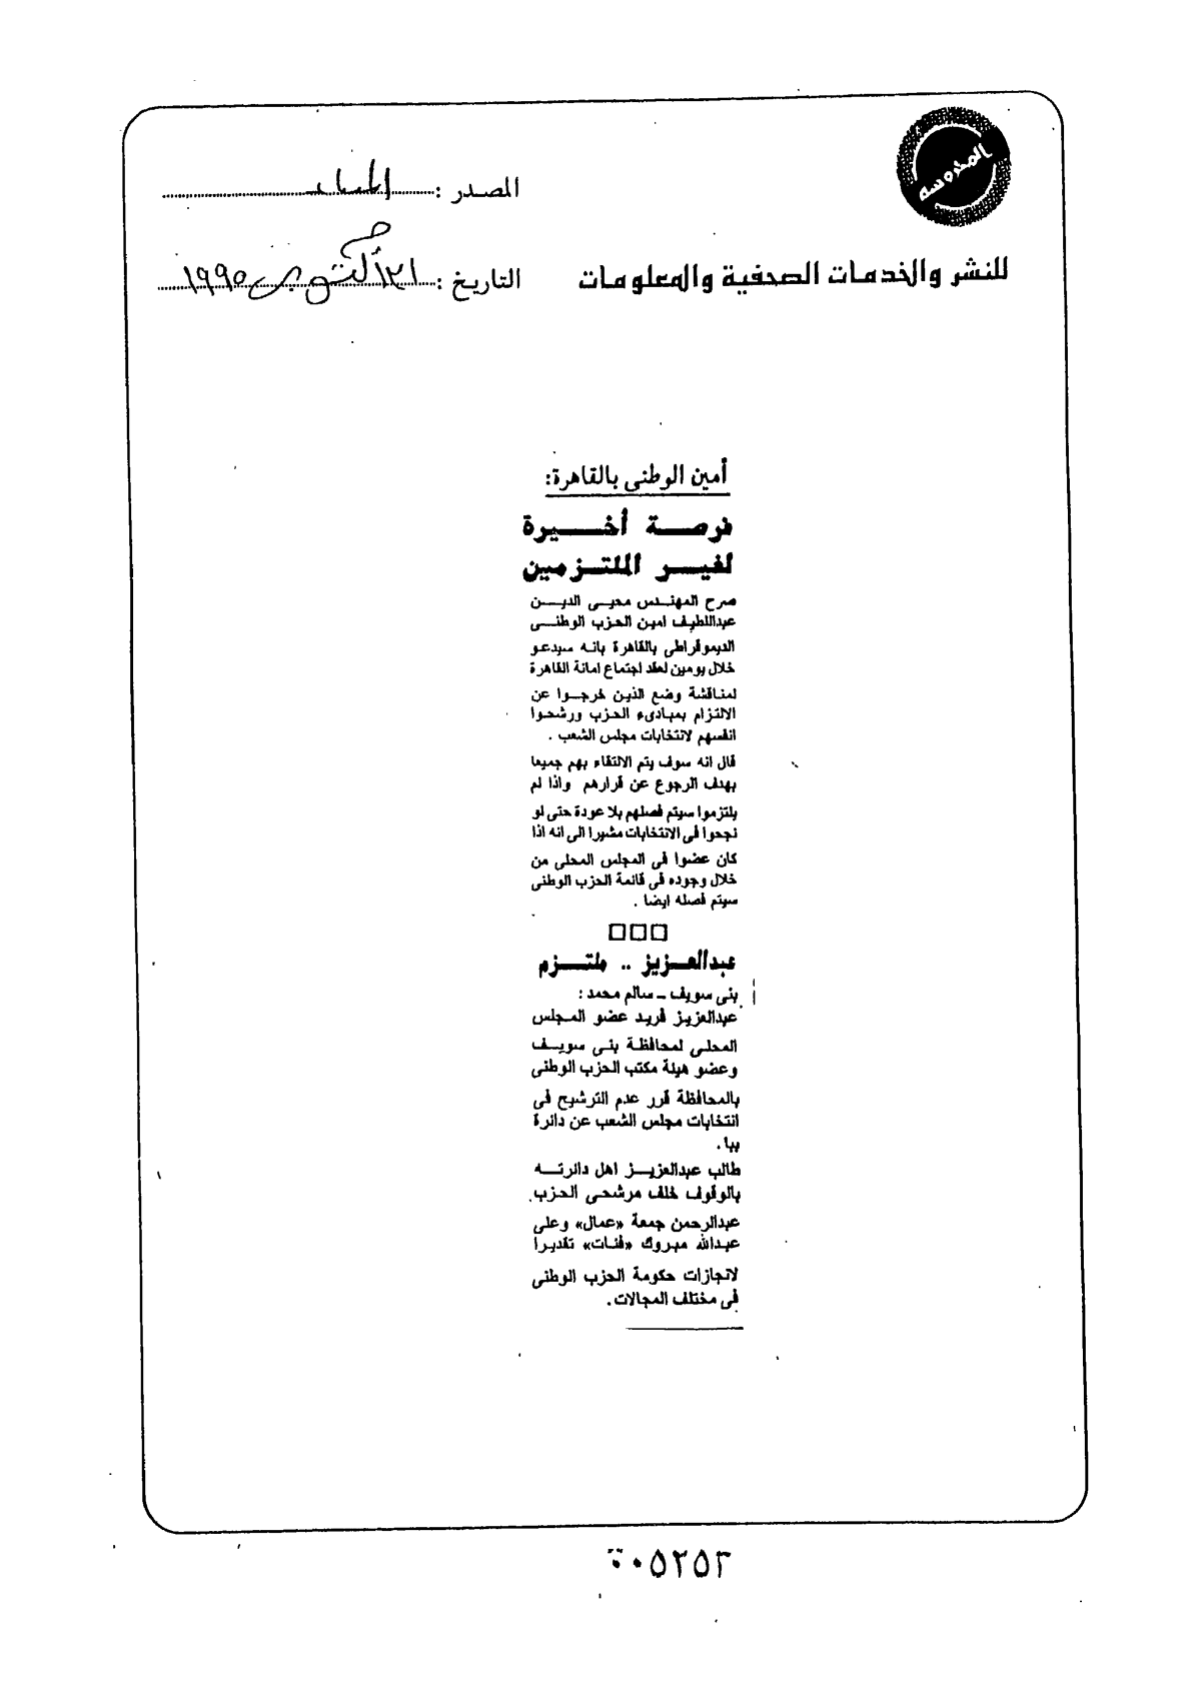 المحروسة
المصدر :
التاريخ : ٢١ أكتوبر ١٩٩٥
للنشر والخدمات الصحفية والمعلومات
أمين الوطنى بالقاهرة:
فرصة أخيرة
لغير الملتزمين
صرح المهندس محيى الدين
عبداللطيف امين الحزب الوطنى
الديموقراطى بالقاهرة بانه سيدعو
خلال يومين لعقد اجتماع امانة القاهرة
لمناقشة وضع الذين خرجوا عن
الالتزام بمبادىء الحزب ورشحوا
انفسهم لانتخابات مجلس الشعب .
قال انه سوف يتم الالتقاء بهم جميعا
بهدف الرجوع عن قرارهم واذا لم
يلتزموا سيتم فصلهم بلا عودة حتى لو
نجحوا فى الانتخابات مشيرا الى انه اذا
كان عضوا فى المجلس المحلى من
خلال وجوده فى قائمة الحزب الوطنى
سيتم فصله ايضا .
عبدالعزيز .. ملتزم
بنى سويف ـ سالم محمد :
عبدالعزيز فريد عضو المجلس
المحلى لمحافظة بنى سويف
وعضو هيئة مكتب الحزب الوطنى
بالمحافظة قرر عدم الترشيح فى
انتخابات مجلس الشعب عن دائرة
ببا .
طالب عبدالعزيز اهل دائرته
بالوقوف خلف مرشحى الحزب
عبدالرحمن جمعة «عمال» وعلى
عبدالله مبروك «فئات» تقديرا
لانجازات حكومة الحزب الوطنى
فى مختلف المجالات .